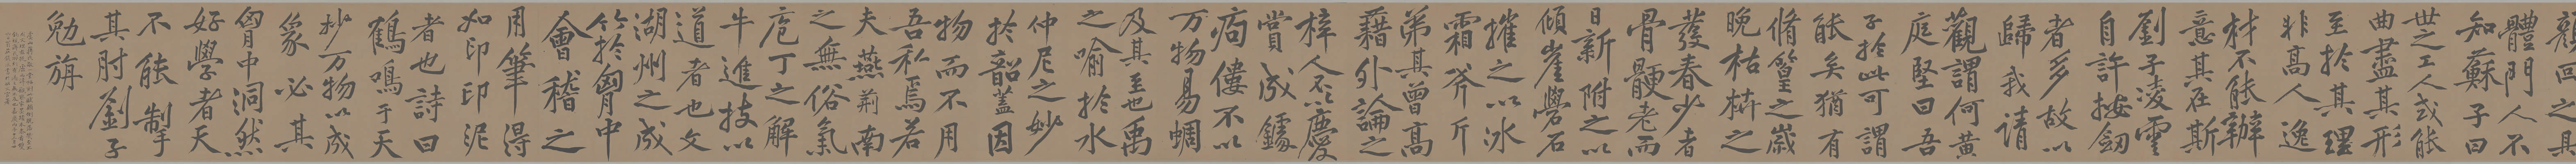 顏回之具
體門人不
知蘇子曰
世之工人或能
曲盡其形
至於其理
非高人逸
材不能辦
意其在斯
劉子凌雲
自許按劍
者多故以
歸我請
觀謂何黃
庭堅曰吾
子於此可謂
能矣猶有
脩篁之歲
晚枯枿之
發春少者
骨骾老而
日新附之以
傾崖礐石
摧之以冰
霜斧斤
弟其曾高
藉外論之
梓人不慶
賞成鐻
痀僂不以
万物易蜩
及其至也禹
之喻於水
仲尼之妙
於韶蓋因
物而不用
吾私焉若
夫燕荊南
之無俗氣
庖丁之解
牛進技以
道者也文
湖州之成
竹於胷中
會稽之
用筆得
如印印泥
者也詩曰
鶴鳴于天
妙万物以成
象必其
胷中洞然
好學者天
不能掣
其肘劉子
勉旃